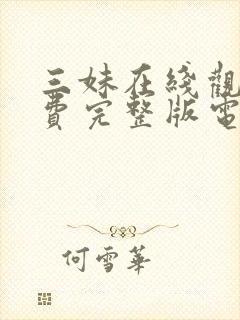 三妹在线觀
費完整版電
何雪華